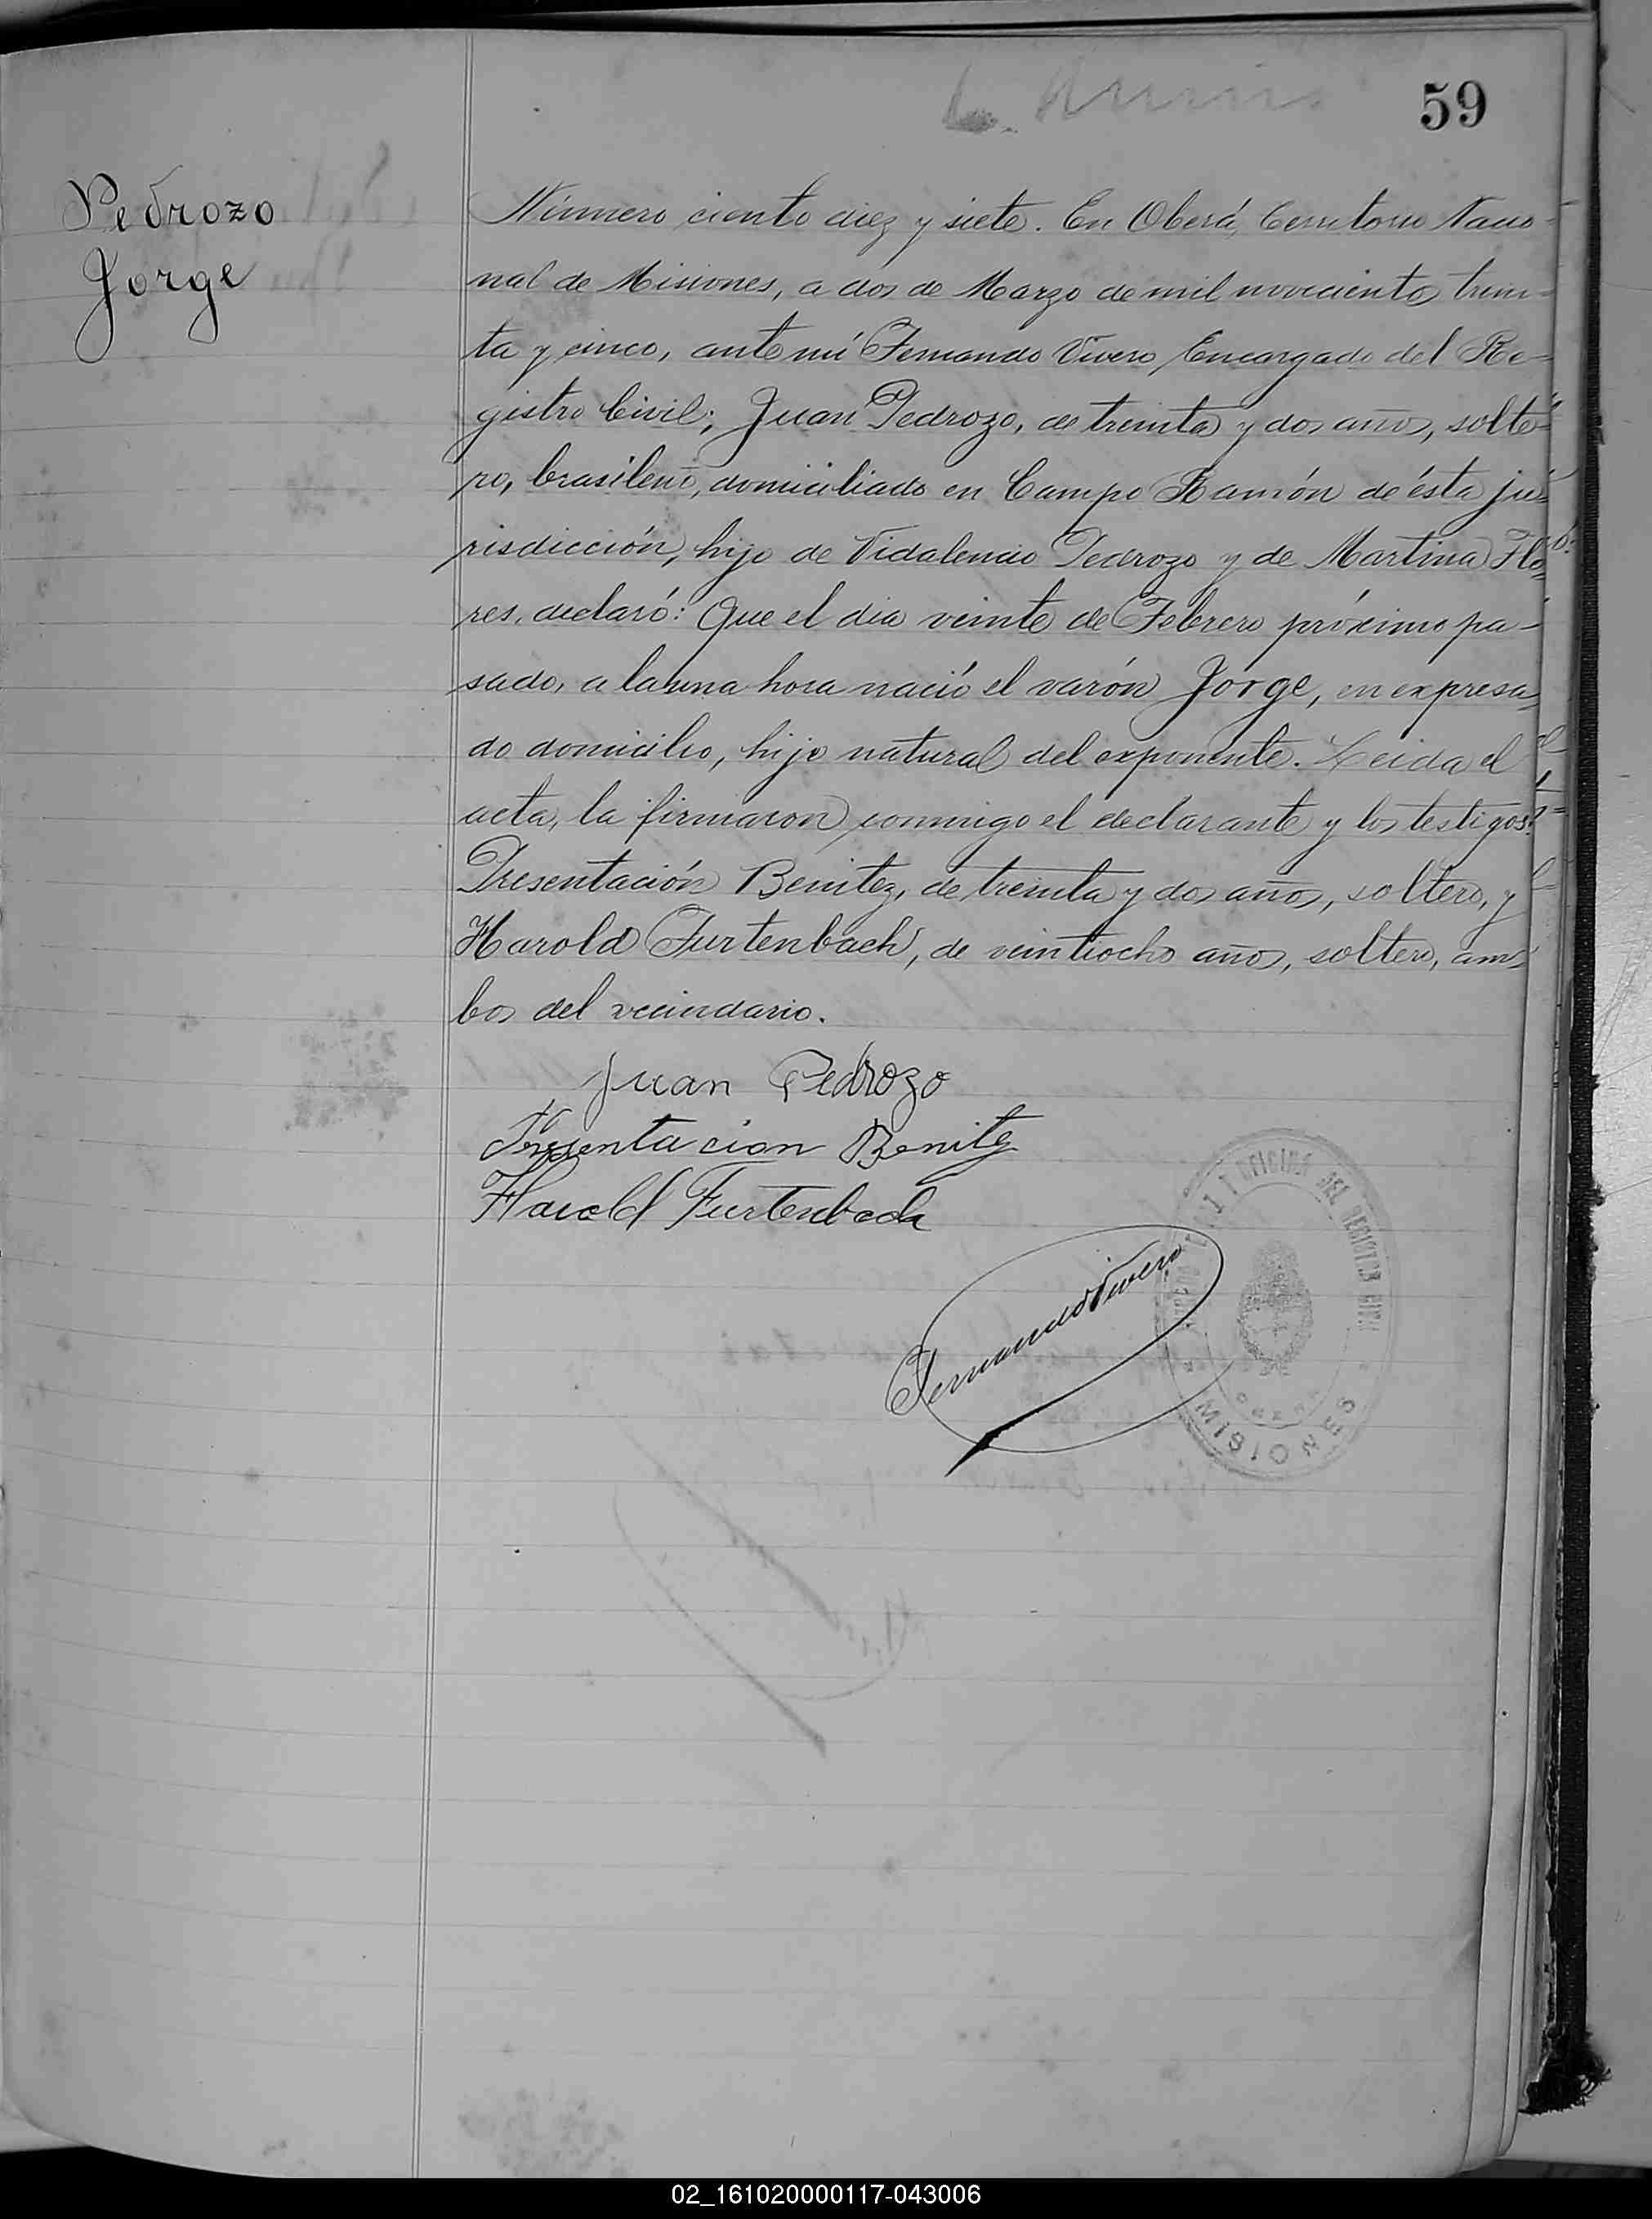 59
Pedrozo
Jorge
Número ciento diez y siete. En Oberá, Territorio Nacio-
nal de Misiones, a dos de Marzo de mil novecientos trein-
ta y cinco, ante mí Fernando Vivero Encargado del Re-
gistro Civil; Juan Pedrozo, de treinta y dos años, solte-
ro, brasileño, domiciliado en Campo Ramón de ésta ju-
risdicción, hijo de Vidalencio Pedrozo y de Martina Flo-
res, declaró: Que el dia veinte de Febrero próximo pa-
sado, a la una hora nació el varón Jorge, en expresa-
do domicilio, hijo natural del exponente. Leida el
acta, la firmaron conmigo el declarante y los testigos:
Presentación Benitez, de treinta y dos años, soltero, y
Harold Furtenbach, de veintiocho años, soltero, am-
bos del vecindario.
Juan Pedrozo
Presentacion Benitez
Harold Furtenbach
Fernando Vivero
OFICINA DEL REGISTRO CIVIL
MISIONES
02_161020000117-043006